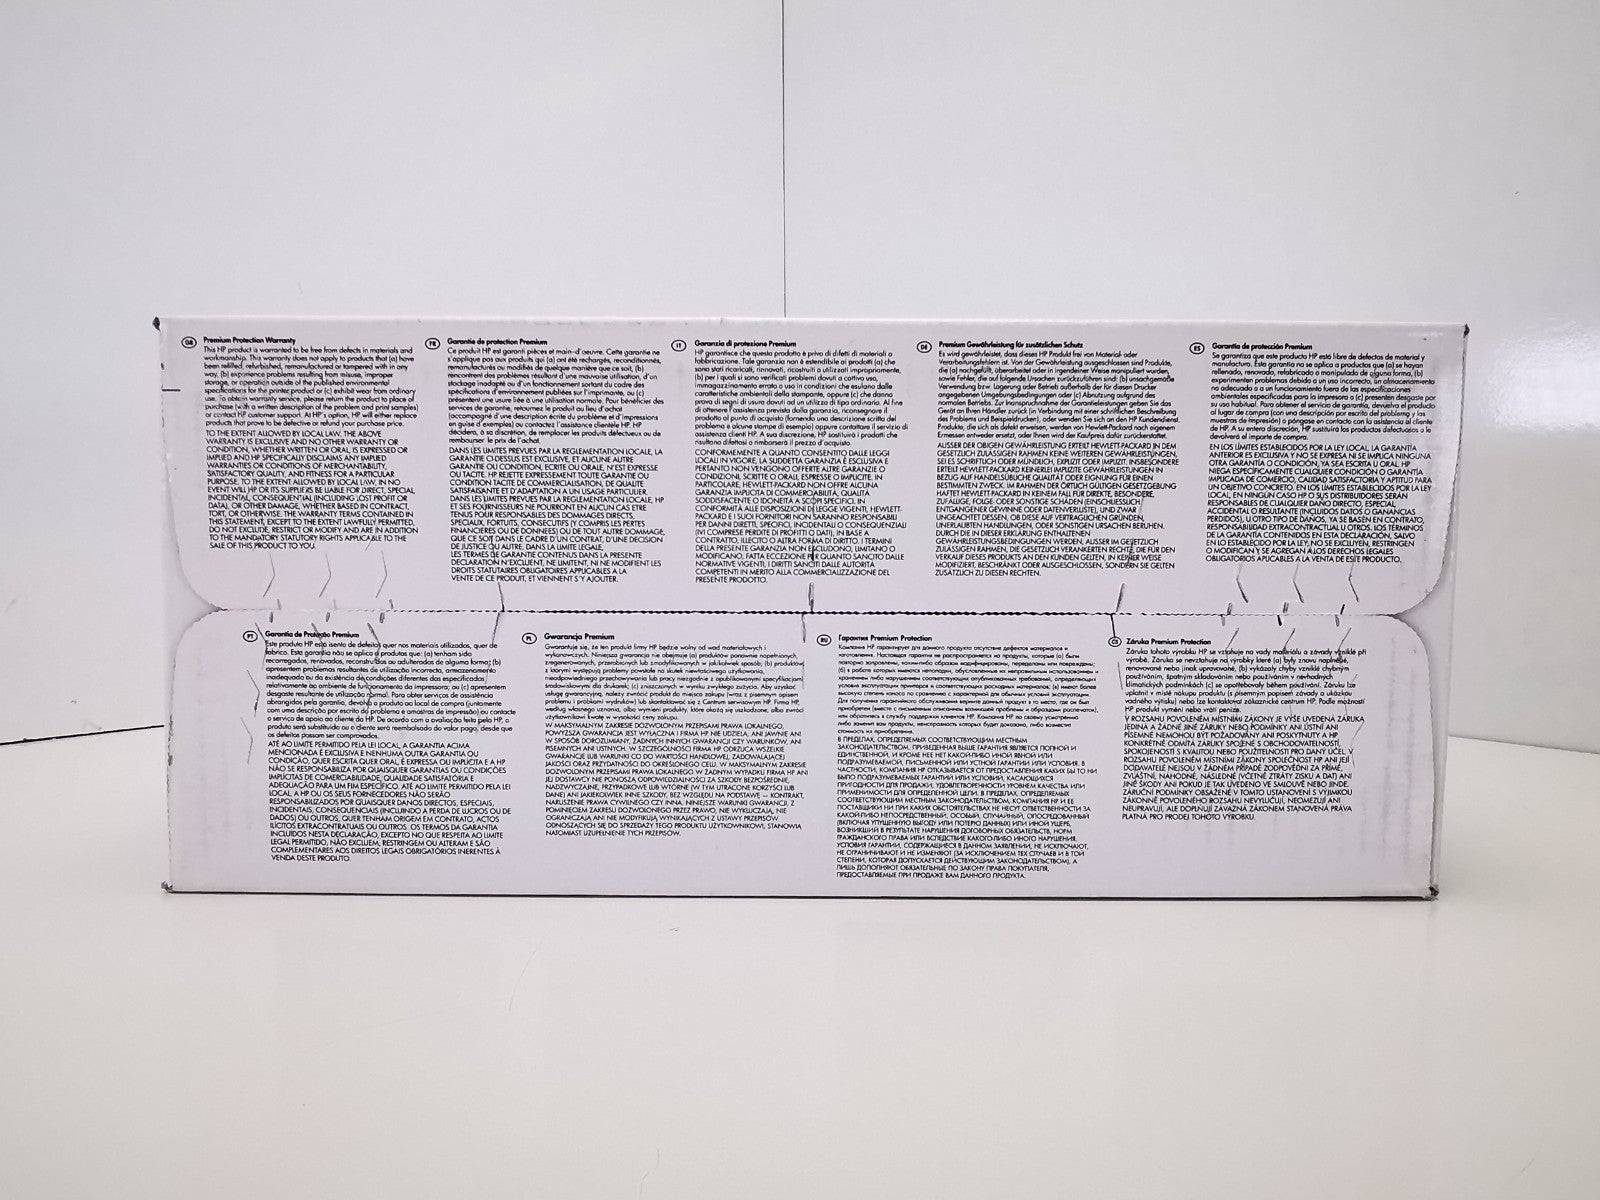 GB
Premium Protection Warranty
This HP product is warranted to be free from defects in materials and
workmanship. This warranty does not apply to products that (a) have
been refilled, refurbished, remanufactured or tampered with in any
way, (b) experience problems resulting from misuse, improper
storage, or operation outside of the published environmental
specifications for the printer product or (c) exhibit wear from ordinary
use. To obtain warranty service, please return the product to place of
purchase (with a written description of the problem and print samples)
or contact HP customer support. At HP's option, HP will either replace
products that prove to be defective or refund your purchase price.
TO THE EXTENT ALLOWED BY LOCAL LAW, THE ABOVE
WARRANTY IS EXCLUSIVE AND NO OTHER WARRANTY OR
CONDITION, WHETHER WRITTEN OR ORAL, IS EXPRESSED OR
IMPLIED AND HP SPECIFICALLY DISCLAIMS ANY IMPLIED
WARRANTIES OR CONDITIONS OF MERCHANTABILITY,
SATISFACTORY QUALITY, AND FITNESS FOR A PARTICULAR
PURPOSE. TO THE EXTENT ALLOWED BY LOCAL LAW, IN NO
EVENT WILL HP OR ITS SUPPLIERS BE LIABLE FOR DIRECT, SPECIAL,
INCIDENTAL, CONSEQUENTIAL (INCLUDING LOST PROFIT OR
DATA), OR OTHER DAMAGE, WHETHER BASED IN CONTRACT,
TORT, OR OTHERWISE. THE WARRANTY TERMS CONTAINED IN
THIS STATEMENT, EXCEPT TO THE EXTENT LAWFULLY PERMITTED,
DO NOT EXCLUDE, RESTRICT OR MODIFY AND ARE IN ADDITION
TO THE MANDATORY STATUTORY RIGHTS APPLICABLE TO THE
SALE OF THIS PRODUCT TO YOU.
FR
Garantie de protection Premium
Ce produit HP est garanti pièces et main-d'oeuvre. Cette garantie ne
s'applique pas aux produits qui (a) ont été rechargés, reconditionnés,
remanufacturés ou modifiés de quelque manière que ce soit, (b)
rencontrent des problèmes résultant d'une mauvaise utilisation, d'un
stockage inadapté ou d'un fonctionnement sortant du cadre des
spécifications d'environnement publiées sur l'imprimante, ou (c)
présentent une usure liée à une utilisation normale. Pour bénéficier des
services de garantie, retournez le produit au lieu d'achat
(accompagné d'une description écrite du problème et d'impressions
en guise d'exemples) ou contactez l'assistance clientèle HP. HP
décidera, à sa discrétion, de remplacer les produits défectueux ou de
rembourser le prix de l'achat.
DANS LES LIMITES PREVUES PAR LA REGLEMENTATION LOCALE, LA
GARANTIE CI DESSUS EST EXCLUSIVE, ET AUCUNE AUTRE
GARANTIE OU CONDITION, ECRITE OU ORALE, N'EST EXPRESSE
OU TACITE. HP REJETTE EXPRESSEMENT TOUTE GARANTIE OU
CONDITION TACITE DE COMMERCIALISATION, DE QUALITE
SATISFAISANTE ET D'ADAPTATION A UN USAGE PARTICULIER.
DANS LES LIMITES PREVUES PAR LA REGLEMENTATION LOCALE, HP
ET SES FOURNISSEURS NE POURRONT EN AUCUN CAS ETRE
TENUS POUR RESPONSABLES DES DOMMAGES DIRECTS,
SPECIAUX, FORTUITS, CONSECUTIFS (Y COMPRIS LES PERTES
FINANCIERES OU DE DONNEES) OU DE TOUT AUTRE DOMMAGE,
QUE CE SOIT DANS LE CADRE D'UN CONTRAT, D'UNE DECISION
DE JUSTICE OU AUTRE. DANS LA LIMITE LEGALE,
LES TERMES DE GARANTIE CONTENUS DANS LA PRESENTE
DECLARATION N'EXCLUENT, NE LIMITENT, NI NE MODIFIENT LES
DROITS STATUTAIRES OBLIGATOIRES APPLICABLES A LA
VENTE DE CE PRODUIT, ET VIENNENT S'Y AJOUTER.
IT
Garanzia di protezione Premium
HP garantisce che questo prodotto è privo di difetti di materiali o
fabbricazione. Tale garanzia non è estendibile ai prodotti (a) che
sono stati ricaricati, rinnovati, ricostruiti o utilizzati impropriamente,
(b) per i quali si sono verificati problemi dovuti a cattivo uso,
immagazzinamento errato o uso in condizioni che esulano dalle
caratteristiche ambientali della stampante, oppure (c) che danno
prova di segni di usura dovuti ad un utilizzo di tipo ordinario. Al fine
di ottenere l'assistenza prevista dalla garanzia, riconsegnare il
prodotto al luogo di acquisto (fornendo una descrizione scritta del
problema e alcune stampe di esempio) oppure contattare il servizio di
assistenza clienti HP. A sua discrezione, HP sostituirà i prodotti che
risultano difettosi o rimborserà il prezzo d'acquisto.
CONFORMEMENTE A QUANTO CONSENTITO DALLE LEGGI
LOCALI IN VIGORE, LA SUDDETTA GARANZIA È ESCLUSIVA E
PERTANTO NON VENGONO OFFERTE ALTRE GARANZIE O
CONDIZIONI, SCRITTE O ORALI, ESPRESSE O IMPLICITE. IN
PARTICOLARE, HEWLETT-PACKARD NON OFFRE ALCUNA
GARANZIA IMPLICITA DI COMMERCIABILITÀ, QUALITÀ
SODDISFACENTE O IDONEITÀ A SCOPI SPECIFICI. IN
CONFORMITÀ ALLE DISPOSIZIONI DI LEGGE VIGENTI, HEWLETT-
PACKARD E I SUOI FORNITORI NON SARANNO RESPONSABILI
PER DANNI DIRETTI, SPECIFICI, INCIDENTALI O CONSEQUENZIALI
(IVI COMPRESE PERDITE DI PROFITTI O DATI), IN BASE A
CONTRATTO, ILLECITO O ALTRA FORMA DI DIRITTO. I TERMINI
DELLA PRESENTE GARANZIA NON ESCLUDONO, LIMITANO O
MODIFICANO, FATTA ECCEZIONE PER QUANTO SANCITO DALLE
NORMATIVE VIGENTI, I DIRITTI SANCITI DALLE AUTORITÀ
COMPETENTI IN MERITO ALLA COMMERCIALIZZAZIONE DEL
PRESENTE PRODOTTO.
DE
Premium Gewährleistung für zusätzlichen Schutz
Es wird gewährleistet, dass dieses HP Produkt frei von Material- oder
Verarbeitungsfehlern ist. Von der Gewährleistung ausgeschlossen sind Produkte,
die (a) nachgefüllt, überarbeitet oder in irgendeiner Weise manipuliert wurden,
sowie Fehler, die auf folgende Ursachen zurückzuführen sind: (b) unsachgemäße
Verwendung bzw. Lagerung oder Betrieb außerhalb der für diesen Drucker
angegebenen Umgebungsbedingungen oder (c) Abnutzung aufgrund des
normalen Betriebs. Zur Inanspruchnahme der Garantieleistungen geben Sie das
Gerät an Ihren Händler zurück (in Verbindung mit einer schriftlichen Beschreibung
des Problems und Beispieldrucken), oder wenden Sie sich an den HP Kundendienst.
Produkte, die sich als defekt erweisen, werden von Hewlett-Packard nach eigenem
Ermessen entweder ersetzt, oder Ihnen wird der Kaufpreis dafür zurückerstattet.
AUSSER DER OBIGEN GEWÄHRLEISTUNG ERTEILT HEWLETT-PACKARD IN DEM
GESETZLICH ZULÄSSIGEN RAHMEN KEINE WEITEREN GEWÄHRLEISTUNGEN,
SEI ES SCHRIFTLICH ODER MÜNDLICH, EXPLIZIT ODER IMPLIZIT. INSBESONDERE
ERTEILT HEWLETT-PACKARD KEINERLEI IMPLIZITE GEWÄHRLEISTUNGEN IN
BEZUG AUF HANDELSÜBLICHE QUALITÄT ODER EIGNUNG FÜR EINEN
BESTIMMTEN ZWECK. IM RAHMEN DER ÖRTLICH GÜLTIGEN GESETZGEBUNG
HAFTET HEWLETT-PACKARD IN KEINEM FALL FÜR DIREKTE, BESONDERE,
ZUFÄLLIGE, FOLGE- ODER SONSTIGE SCHÄDEN (EINSCHLIESSLICH
ENTGANGENER GEWINNE ODER DATENVERLUSTE), UND ZWAR
UNGEACHTET DESSEN, OB DIESE AUF VERTRAGLICHEN GRÜNDEN,
UNERLAUBTEN HANDLUNGEN, ODER SONSTIGEN URSACHEN BERUHEN.
DURCH DIE IN DIESER ERKLÄRUNG ENTHALTENEN
GEWÄHRLEISTUNGSBEDINGUNGEN WERDEN, AUSSER IM GESETZLICH
ZULÄSSIGEN RAHMEN, DIE GESETZLICH VERANKERTEN RECHTE, DIE FÜR DEN
VERKAUF DIESES PRODUKTS AN DEN KUNDEN GELTEN, IN KEINER WEISE
MODIFIZIERT, BESCHRÄNKT ODER AUSGESCHLOSSEN, SONDERN SIE GELTEN
ZUSÄTZLICH ZU DIESEN RECHTEN.
ES
Garantía de protección Premium
Se garantiza que este producto HP está libre de defectos de material y
manufactura. Esta garantía no se aplica a productos que (a) se hayan
rellenado, renovado, refabricado o manipulado de alguna forma, (b)
experimenten problemas debido a un uso incorrecto, un almacenamiento
no adecuado o a un funcionamiento fuera de las especificaciones
ambientales especificadas para la impresora o (c) presenten desgaste por
su uso habitual. Para obtener el servicio de garantía, devuelva el producto
al lugar de compra (con una descripción por escrito del problema y las
muestras de impresión) o póngase en contacto con la asistencia al cliente
de HP. A su entera discreción, HP sustituirá los productos defectuosos o le
devolverá el importe de compra.
EN LOS LÍMITES ESTABLECIDOS POR LA LEY LOCAL, LA GARANTÍA
ANTERIOR ES EXCLUSIVA Y NO SE EXPRESA NI SE IMPLICA NINGUNA
OTRA GARANTÍA O CONDICIÓN, YA SEA ESCRITA U ORAL. HP
NIEGA ESPECÍFICAMENTE CUALQUIER CONDICIÓN O GARANTÍA
IMPLICADA DE COMERCIO, CALIDAD SATISFACTORIA Y APTITUD PARA
UN OBJETIVO CONCRETO. EN LOS LÍMITES ESTABLECIDOS POR LA LEY
LOCAL, EN NINGÚN CASO HP O SUS DISTRIBUIDORES SERÁN
RESPONSABLES DE CUALQUIER DAÑO DIRECTO, ESPECIAL,
ACCIDENTAL O RESULTANTE (INCLUIDOS DATOS O GANANCIAS
PERDIDOS), U OTRO TIPO DE DAÑOS, YA SE BASEN EN CONTRATO,
RESPONSABILIDAD EXTRACONTRACTUAL U OTROS. LOS TÉRMINOS
DE LA GARANTÍA CONTENIDOS EN ESTA DECLARACIÓN, SALVO
EN LO ESTABLECIDO POR LA LEY, NO SE EXCLUYEN, RESTRINGEN
O MODIFICAN Y SE AGREGAN A LOS DERECHOS LEGALES
OBLIGATORIOS APLICABLES A LA VENTA DE ESTE PRODUCTO.
PT
Garantia de Proteção Premium
Este produto HP está isento de defeitos quer nos materiais utilizados, quer de
fabrico. Esta garantia não se aplica a produtos que: (a) tenham sido
recarregados, renovados, reconstruídos ou adulterados de alguma forma; (b)
apresentem problemas resultantes de utilização incorrecta, armazenamento
inadequado ou da existência de condições diferentes das especificadas
relativamente ao ambiente de funcionamento da impressora; ou (c) apresentem
desgaste resultante de utilização normal. Para obter serviços de assistência
abrangidos pela garantia, devolva o produto ao local de compra (juntamente
com uma descrição por escrito do problema e amostras de impressão) ou contacte
o serviço de apoio ao cliente da HP. De acordo com a avaliação feita pela HP, o
produto será substituído ou o cliente será reembolsado do valor pago, desde que
os defeitos possam ser comprovados.
ATÉ AO LIMITE PERMITIDO PELA LEI LOCAL, A GARANTIA ACIMA
MENCIONADA É EXCLUSIVA E NENHUMA OUTRA GARANTIA OU
CONDIÇÃO, QUER ESCRITA QUER ORAL, É EXPRESSA OU IMPLÍCITA E A HP
NÃO SE RESPONSABILIZA POR QUAISQUER GARANTIAS OU CONDIÇÕES
IMPLÍCITAS DE COMERCIABILIDADE, QUALIDADE SATISFATÓRIA E
ADEQUAÇÃO PARA UM FIM ESPECÍFICO. ATÉ AO LIMITE PERMITIDO PELA LEI
LOCAL, A HP OU OS SEUS FORNECEDORES NÃO SERÃO
RESPONSABILIZADOS POR QUAISQUER DANOS DIRECTOS, ESPECIAIS,
INCIDENTAIS, CONSEQUENCIAIS (INCLUINDO A PERDA DE LUCROS OU DE
DADOS) OU OUTROS, QUER TENHAM ORIGEM EM CONTRATO, ACTOS
ILÍCITOS EXTRACONTRATUAIS OU OUTROS. OS TERMOS DA GARANTIA
INCLUÍDOS NESTA DECLARAÇÃO, EXCEPTO NO QUE RESPEITA AO LIMITE
LEGAL PERMITIDO, NÃO EXCLUEM, RESTRINGEM OU ALTERAM E SÃO
COMPLEMENTARES AOS DIREITOS LEGAIS OBRIGATÓRIOS INERENTES À
VENDA DESTE PRODUTO.
PL
Gwarancja Premium
Gwarantuje się, że ten produkt firmy HP będzie wolny od wad materiałowych i
wykonawczych. Niniejsza gwarancja nie obejmuje (a) produktów ponownie napełnionych,
zregenerowanych, przerobionych lub zmodyfikowanych w jakikolwiek sposób; (b) produktów,
z którymi występują problemy powstałe na skutek niewłaściwego użytkowania,
nieodpowiedniego przechowywania lub pracy niezgodnie z opublikowanymi specyfikacjami
środowiskowymi dla drukarek; (c) zniszczonych w wyniku zwykłego zużycia. Aby uzyskać
usługę gwarancyjną, należy zwrócić produkt do miejsca zakupu (wraz z pisemnym opisem
problemu i próbkami wydruków) lub skontaktować się z Centrum serwisowym HP. Firma HP,
według własnego uznania, albo wymieni produkty, które okażą się uszkodzone, albo zwróci
użytkownikowi kwotę w wysokości ceny zakupu.
W MAKSYMALNYM ZAKRESIE DOZWOLONYM PRZEPISAMI PRAWA LOKALNEGO,
POWYŻSZA GWARANCJA JEST WYŁĄCZNA I FIRMA HP NIE UDZIELA, ANI JAWNIE ANI
W SPOSÓB DOROZUMIANY, ŻADNYCH INNYCH GWARANCJI CZY WARUNKÓW, ANI
PISEMNYCH ANI USTNYCH. W SZCZEGÓLNOŚCI FIRMA HP ODRZUCA WSZELKIE
GWARANCJE LUB WARUNKI CO DO WARTOŚCI HANDLOWEJ, ZADOWALAJĄCEJ
JAKOŚCI ORAZ PRZYDATNOŚCI DO OKREŚLONEGO CELU. W MAKSYMALNYM ZAKRESIE
DOZWOLONYM PRZEPISAMI PRAWA LOKALNEGO W ŻADNYM WYPADKU FIRMA HP ANI
JEJ DOSTAWCY NIE PONOSZĄ ODPOWIEDZIALNOŚCI ZA SZKODY BEZPOŚREDNIE,
NADZWYCZAJNE, PRZYPADKOWE LUB WTÓRNE (W TYM UTRACONE KORZYŚCI LUB
DANE) ANI JAKIEKOLWIEK INNE SZKODY, BEZ WZGLĘDU NA PODSTAWĘ – KONTRAKT,
NARUSZENIE PRAWA CYWILNEGO CZY INNA. NINIEJSZE WARUNKI GWARANCJI, Z
POMINIĘCIEM ZAKRESU DOZWOLONEGO PRZEZ PRAWO, NIE WYKLUCZAJĄ, NIE
OGRANICZAJĄ ANI NIE MODYFIKUJĄ WYNIKAJĄCYCH Z USTAWY PRZEPISÓW
ODNOSZĄCYCH SIĘ DO SPRZEDAŻY TEGO PRODUKTU UŻYTKOWNIKOWI, STANOWIĄ
NATOMIAST UZUPEŁNIENIE TYCH PRZEPISÓW.
RU
Гарантия Premium Protection
Компания HP гарантирует для данного продукта отсутствие дефектов материалов и
изготовления. Настоящая гарантия не распространяется на продукты, которые (а) были
повторно заправлены, каким-либо образом модифицированы, переделаны или повреждены;
(б) в работе которых имеются неполадки, обусловленные их неправильным использованием и
хранением либо нарушением соответствующих опубликованных требований, определяющих
условия эксплуатации принтера и соответствующих расходных материалов; (в) имеют более
высокую степень износа по сравнению с характерной для обычных условий эксплуатации.
Для получения гарантийного обслуживания верните данный продукт в то место, где он был
приобретен (вместе с письменным описанием возникшей проблемы и образцами распечаток),
или обратитесь в службу поддержки клиентов HP. Компания HP по своему усмотрению
либо заменит вам продукты, неисправность которых будет доказана, либо возместит
стоимость их приобретения.
В ПРЕДЕЛАХ, ОПРЕДЕЛЯЕМЫХ СООТВЕТСТВУЮЩИМ МЕСТНЫМ
ЗАКОНОДАТЕЛЬСТВОМ, ПРИВЕДЕННАЯ ВЫШЕ ГАРАНТИЯ ЯВЛЯЕТСЯ ПОЛНОЙ И
ЕДИНСТВЕННОЙ, И КРОМЕ НЕЕ НЕТ КАКОЙ-ЛИБО ИНОЙ ЯВНОЙ ИЛИ
ПОДРАЗУМЕВАЕМОЙ, ПИСЬМЕННОЙ ИЛИ УСТНОЙ ГАРАНТИИ ИЛИ УСЛОВИЯ. В
ЧАСТНОСТИ, КОМПАНИЯ HP ОТКАЗЫВАЕТСЯ ОТ ПРЕДОСТАВЛЕНИЯ КАКИХ БЫ ТО НИ
БЫЛО ПОДРАЗУМЕВАЕМЫХ ГАРАНТИЙ ИЛИ УСЛОВИЙ, КАСАЮЩИХСЯ
ПРИГОДНОСТИ ДЛЯ ПРОДАЖИ, УДОВЛЕТВОРЕННОСТИ УРОВНЕМ КАЧЕСТВА ИЛИ
ПРИМЕНИМОСТИ ДЛЯ ОПРЕДЕЛЕННОЙ ЦЕЛИ. В ПРЕДЕЛАХ, ОПРЕДЕЛЯЕМЫХ
СООТВЕТСТВУЮЩИМ МЕСТНЫМ ЗАКОНОДАТЕЛЬСТВОМ, КОМПАНИЯ HP И ЕЕ
ПОСТАВЩИКИ НИ ПРИ КАКИХ ОБСТОЯТЕЛЬСТВАХ НЕ НЕСУТ ОТВЕТСТВЕННОСТИ ЗА
КАКОЙ-ЛИБО НЕПОСРЕДСТВЕННЫЙ, ОСОБЫЙ, СЛУЧАЙНЫЙ, ОПОСРЕДОВАННЫЙ
(ВКЛЮЧАЯ УПУЩЕННУЮ ВЫГОДУ ИЛИ ПОТЕРЮ ДАННЫХ) ИЛИ ИНОЙ УЩЕРБ,
ВОЗНИКШИЙ В РЕЗУЛЬТАТЕ НАРУШЕНИЯ ДОГОВОРНЫХ ОБЯЗАТЕЛЬСТВ, НОРМ
ГРАЖДАНСКОГО ПРАВА ИЛИ ВСЛЕДСТВИЕ КАКОГО-ЛИБО ИНОГО НАРУШЕНИЯ.
УСЛОВИЯ ГАРАНТИИ, СОДЕРЖАЩИЕСЯ В ДАННОМ ЗАЯВЛЕНИИ, НЕ ИСКЛЮЧАЮТ,
НЕ ОГРАНИЧИВАЮТ И НЕ ИЗМЕНЯЮТ (ЗА ИСКЛЮЧЕНИЕМ ТЕХ СЛУЧАЕВ И В ТОЙ
СТЕПЕНИ, КОТОРАЯ ДОПУСКАЕТСЯ ДЕЙСТВУЮЩИМ ЗАКОНОДАТЕЛЬСТВОМ), А
ЛИШЬ ДОПОЛНЯЮТ ОБЯЗАТЕЛЬНЫЕ ПО ЗАКОНУ ПРАВА ПОКУПАТЕЛЯ,
ПРЕДОСТАВЛЯЕМЫЕ ПРИ ПРОДАЖЕ ВАМ ДАННОГО ПРОДУКТА.
CS
Záruka Premium Protection
Záruka tohoto výrobku HP se vztahuje na vady materiálu a závady vzniklé při
výrobě. Záruka se nevztahuje na výrobky které (a) byly znovu naplněné,
renovované nebo jinak upravované, (b) vykázaly chyby vzniklé chybným
používáním, špatným skladováním nebo používáním v nevhodných
klimatických podmínkách (c) se opotřebovaly během používání. Záruku lze
uplatnit v místě nákupu produktu (s písemným popisem závady a ukázkou
vadného tisku) nebo lze kontaktoval zákaznické centrum HP. Podle možností
HP produkt vymění nebo vrátí peníze.
V ROZSAHU POVOLENÉM MÍSTNÍMI ZÁKONY JE VÝŠE UVEDENÁ ZÁRUKA
JEDINÁ A ŽÁDNÉ JINÉ ZÁRUKY NEBO PODMÍNKY ANI ÚSTNÍ ANI
PÍSEMNÉ NEMOHOU BÝT POŽADOVÁNY ANI POSKYTNUTY A HP
KONKRÉTNĚ ODMÍTÁ ZÁRUKY SPOJENÉ S OBCHODOVATELNOSTÍ,
SPOKOJENOSTÍ S KVALITOU NEBO POUŽITELNOSTÍ PRO DANÝ ÚČEL. V
ROZSAHU POVOLENÉM MÍSTNÍMI ZÁKONY SPOLEČNOST HP ANI JEJÍ
DODAVATELÉ NEJSOU V ŽÁDNÉM PŘÍPADĚ ZODPOVĚDNI ZA PŘÍMÉ,
ZVLÁŠTNÍ, NÁHODNÉ, NÁSLEDNÉ (VČETNĚ ZTRÁTY ZISKU A DAT) ANI
JINÉ ŠKODY ANI POKUD JE TAK UVEDENO VE SMLOUVĚ NEBO JINDE.
ZÁRUČNÍ PODMÍNKY OBSAŽENÉ V TOMTO USTANOVENÍ S VÝJIMKOU
ZÁKONNĚ POVOLENÉHO ROZSAHU NEVYLUČUJÍ, NEOMEZUJÍ ANI
NEUPRAVUJÍ, ALE DOPLŇUJÍ ZÁVAZNÁ ZÁKONEM STANOVENÁ PRÁVA
PLATNÁ PRO PRODEJ TOHOTO VÝROBKU.